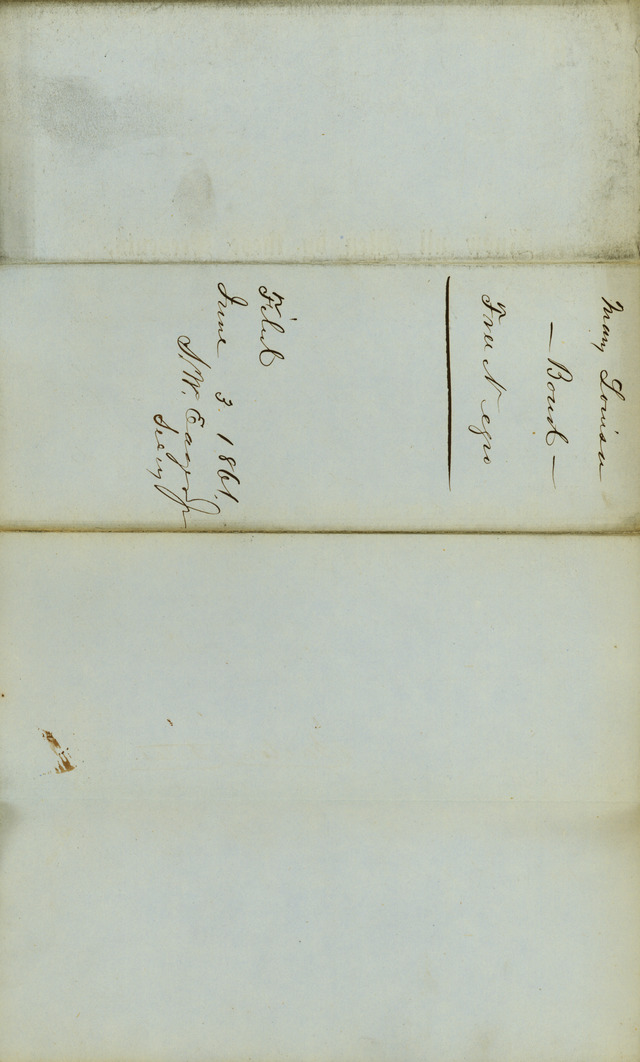 Mary Louisa
— Bond —
Free Negro
Filed
June 3. 1861.
S. W. Eager Jr